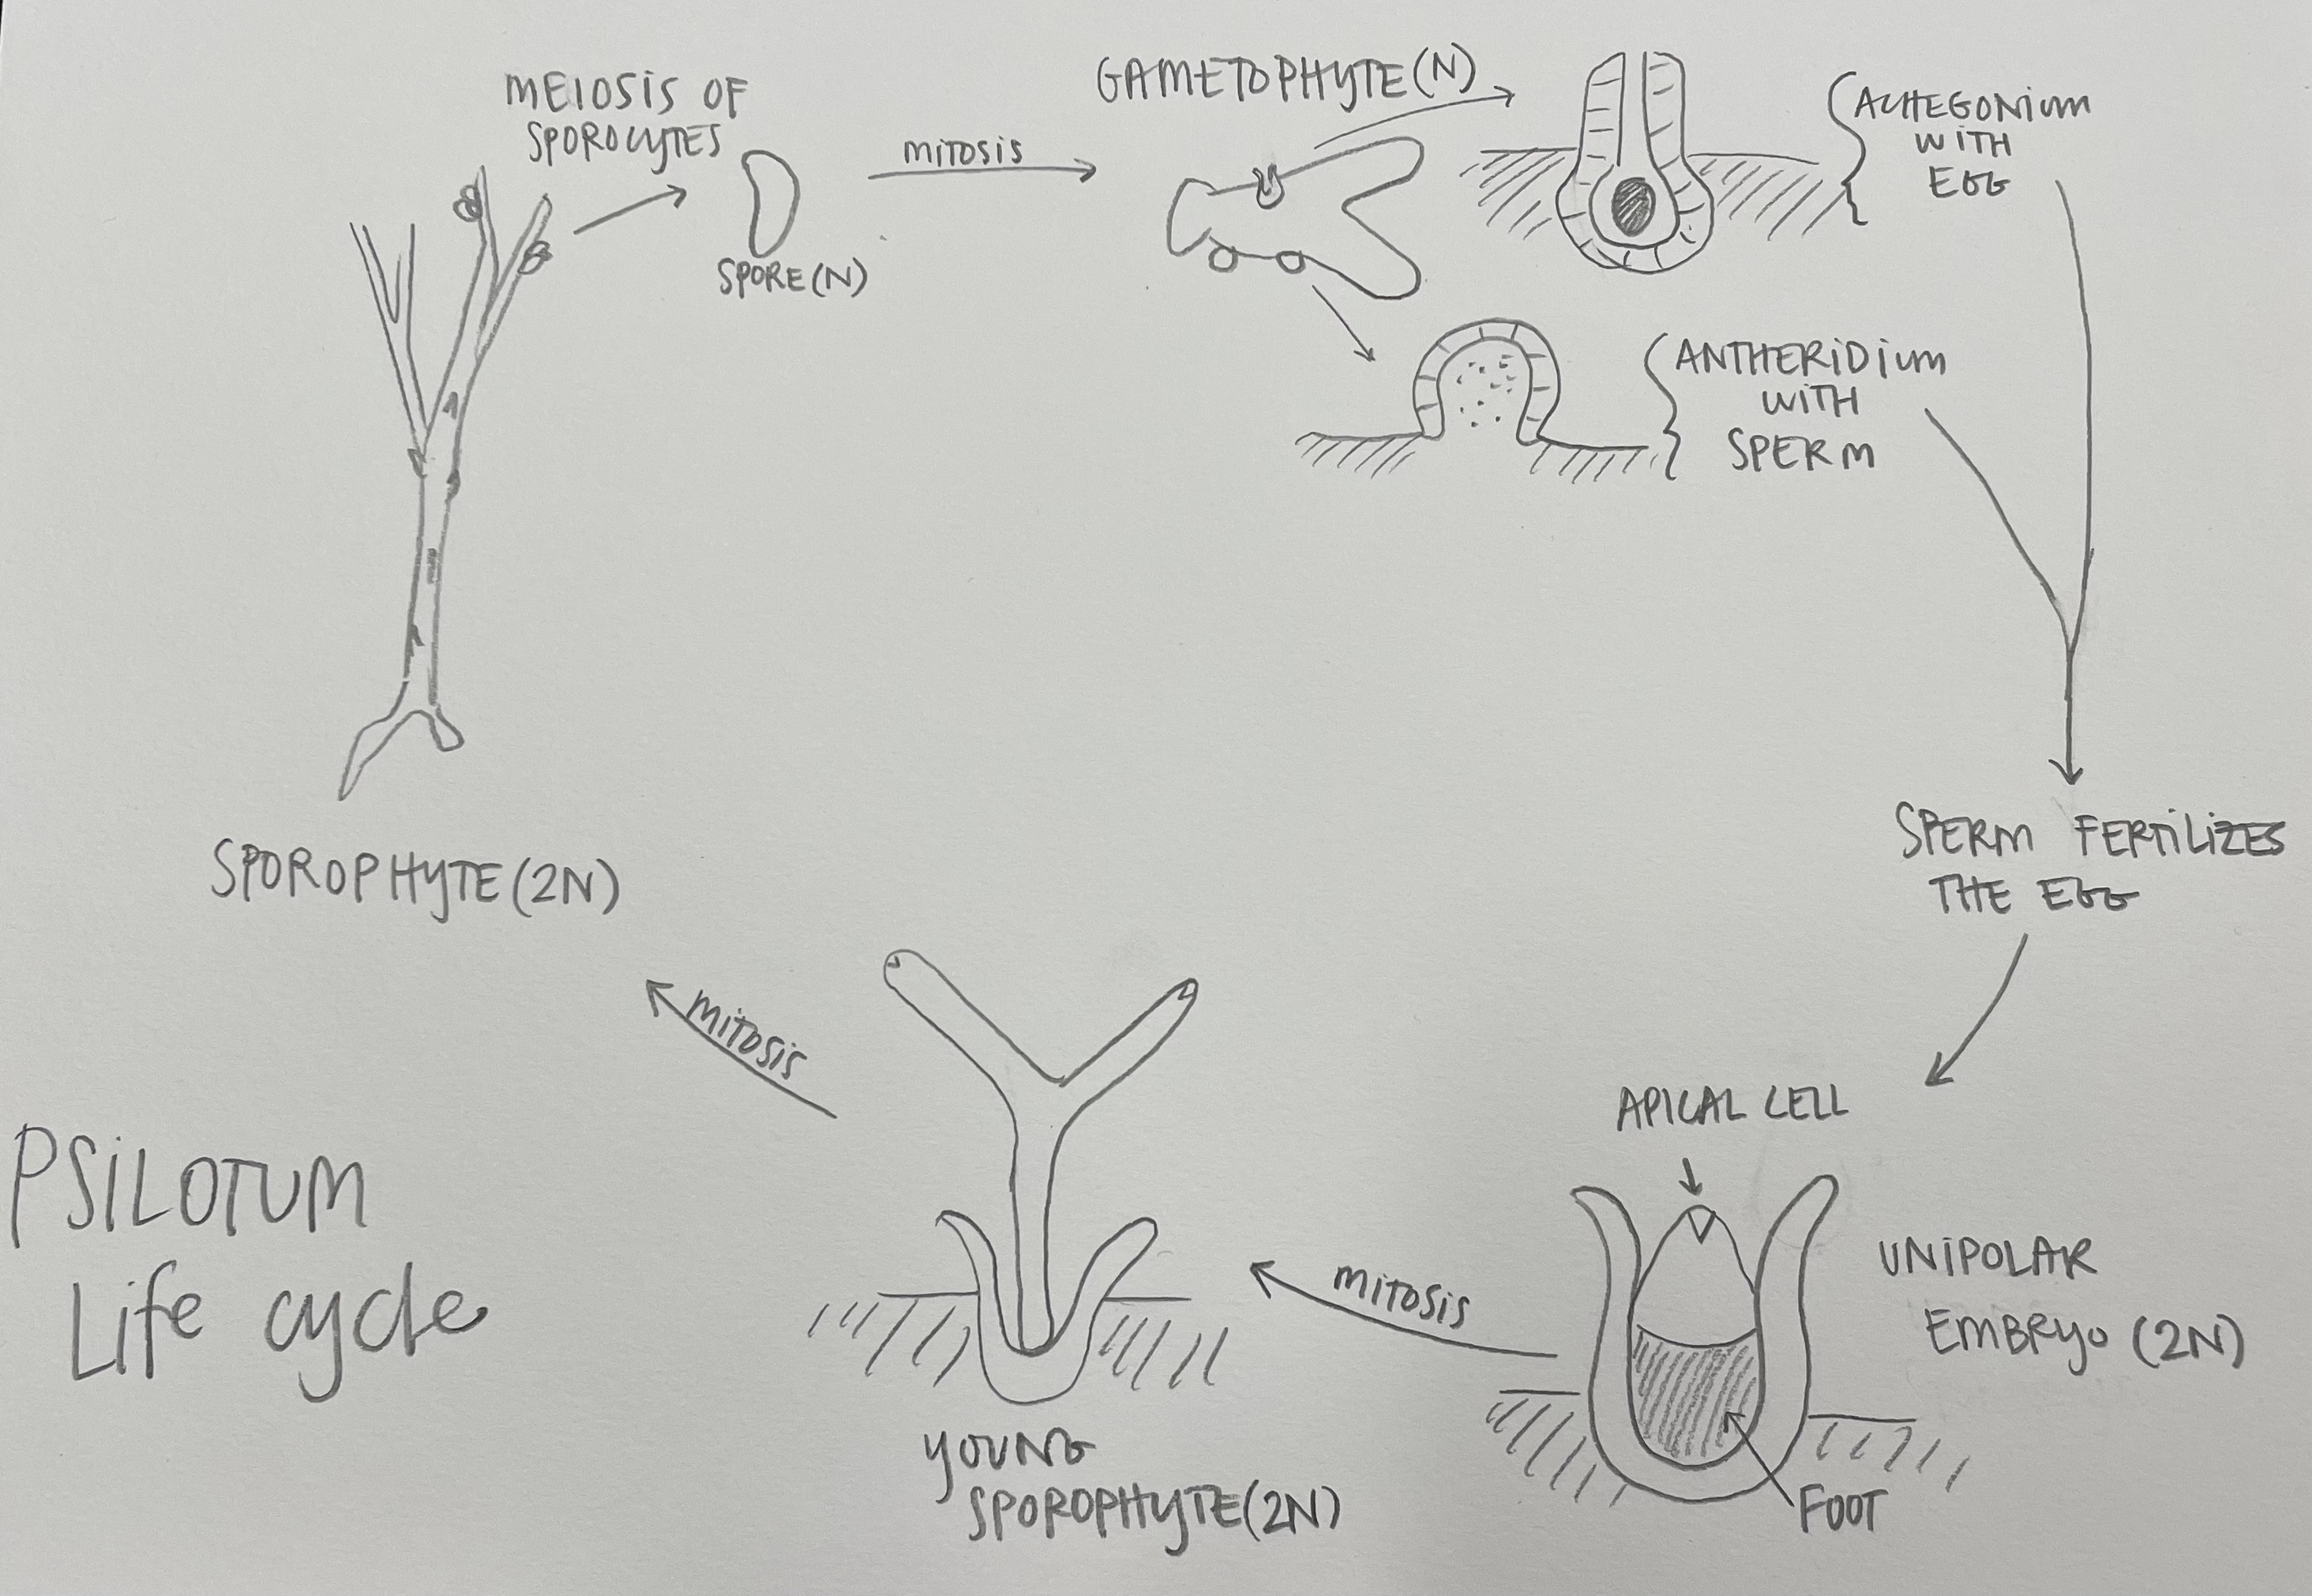 MEIOSIS OF
SPOROCYTES
SPORE (N)
MITOSIS
GAMETOPHYTE (N)
ACHEGONIUM
WITH
EGG
ANTHERIDIUM
WITH
SPERM
SPERM FERTILIZES
THE EGG
APICAL CELL
UNIPOLAR
EMBRYO (2N)
FOOT
MITOSIS
YOUNG
SPOROPHYTE (2N)
MITOSIS
SPOROPHYTE (2N)
PSILOTUM
Life cycle